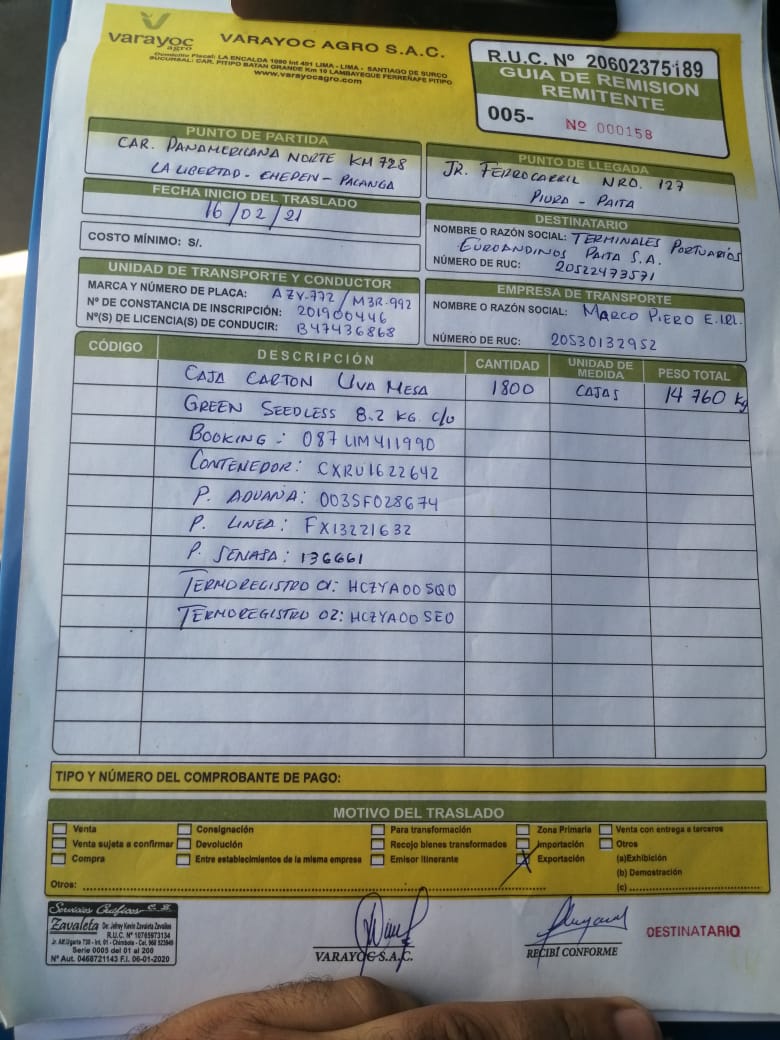 varayoc
agro
VARAYOC AGRO S.A.C.
Domicilio Fiscal: LA ENCALDA 1090 Int 401 LIMA - LIMA - SANTIAGO DE SURCO
SUCURSAL: CAR. PITIPO BATAN GRANDE Km 10 LAMBAYEQUE FERREÑAFE PITIPO
www.varayocagro.com
R.U.C. Nº 20602375189
GUIA DE REMISION
REMITENTE
005- Nº 000158
PUNTO DE PARTIDA
CAR. PANAMERICANA NORTE KM 728
LA LIBERTAD - CHEPEN - PACANGA
PUNTO DE LLEGADA
JR. FERROCARRIL NRO. 127
PIURA - PAITA
FECHA INICIO DEL TRASLADO
16/02/21
COSTO MÍNIMO: S/.
DESTINATARIO
NOMBRE O RAZÓN SOCIAL: TERMINALES PORTUARIOS
EUROANDINOS PAITA S.A.
NÚMERO DE RUC: 20522473571
UNIDAD DE TRANSPORTE Y CONDUCTOR
MARCA Y NÚMERO DE PLACA: AZV-772 / M3R-992
Nº DE CONSTANCIA DE INSCRIPCIÓN: 201900446
Nº(S) DE LICENCIA(S) DE CONDUCIR: B47436868
EMPRESA DE TRANSPORTE
NOMBRE O RAZÓN SOCIAL: MARCO PIERO E.I.RL.
NÚMERO DE RUC: 20530132952
CÓDIGO DESCRIPCIÓN CANTIDAD UNIDAD DE MEDIDA PESO TOTAL
CAJA CARTON UVA MESA 1800 CAJAS 14 760 Kg
GREEN SEEDLESS 8.2 KG. c/u
BOOKING: 087LIM411990
CONTENEDOR: CXRU1622642
P. ADUANA: 003SF028674
P. LINEA: FX13221632
P. SENASA: 136661
TERMOREGISTRO 01: HCZYA00SQ0
TERMOREGISTRO 02: HCZYA00SE0
TIPO Y NÚMERO DEL COMPROBANTE DE PAGO:
MOTIVO DEL TRASLADO
Venta Consignación Para transformación Zona Primaria Venta con entrega a terceros
Venta sujeta a confirmar Devolución Recojo bienes transformados Importación Otros
Compra Entre establecimientos de la misma empresa Emisor Itinerante Exportación (a)Exhibición
(b) Demostración
Otros: (c)
Servicios Gráficos
Zavaleta De: Jefrey Kevin Zavaleta Zavalleta
R.U.C. Nº 10765973134
Jr. Alf.Ugarte 730 - Int. 01 - Chimbote - Cel. 968 523949
Serie 0005 del 01 al 200
Nº Aut. 0468721143 F.I. 06-01-2020
VARAYOC S.A.C.
RECIBÍ CONFORME
DESTINATARIO